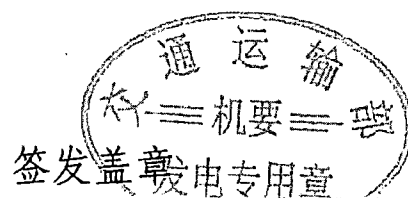 交通运输部
机要
签发盖章
发电专用章